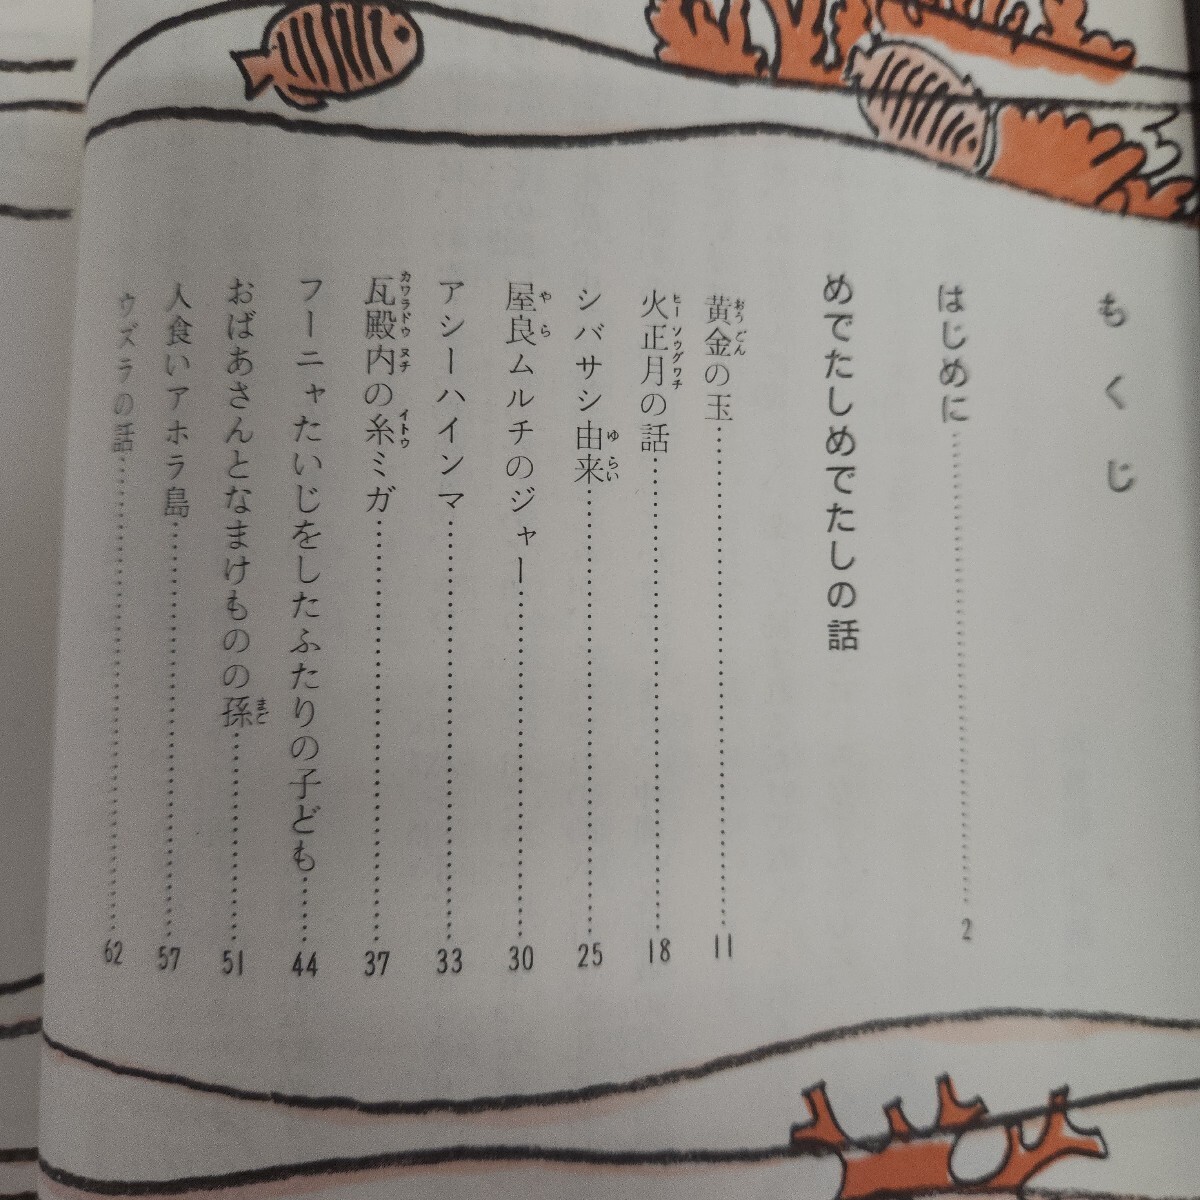 もくじ
はじめに……2
めでたしめでたしの話
黄金の玉……11
火正月の話……18
シバサシ由来……25
屋良ムルチのジャー……30
アシーハインマ……33
瓦殿内の糸ミガ……37
フーニャたいじをしたふたりの子ども……44
おばあさんとなまけものの孫……51
人食いアホラ島……57
ウズラの話……62